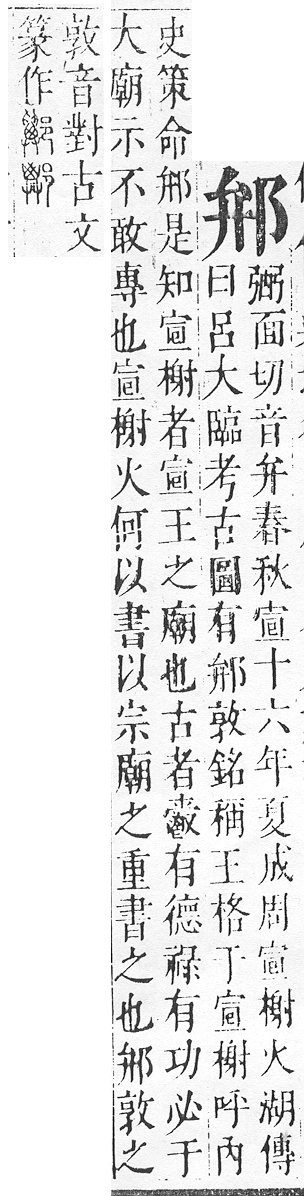 郱
弼面切音弁春秋宣十六年夏成周宣榭火湖傳
曰呂大臨考古圖有郱敦銘稱王格于宣榭呼內
史策命郱是知宣榭者宣王之廟也古者爵有德祿有功必于
大廟示不敢專也宣榭火何以書以宗廟之重書之也郱敦之
敦音對古文
篆作